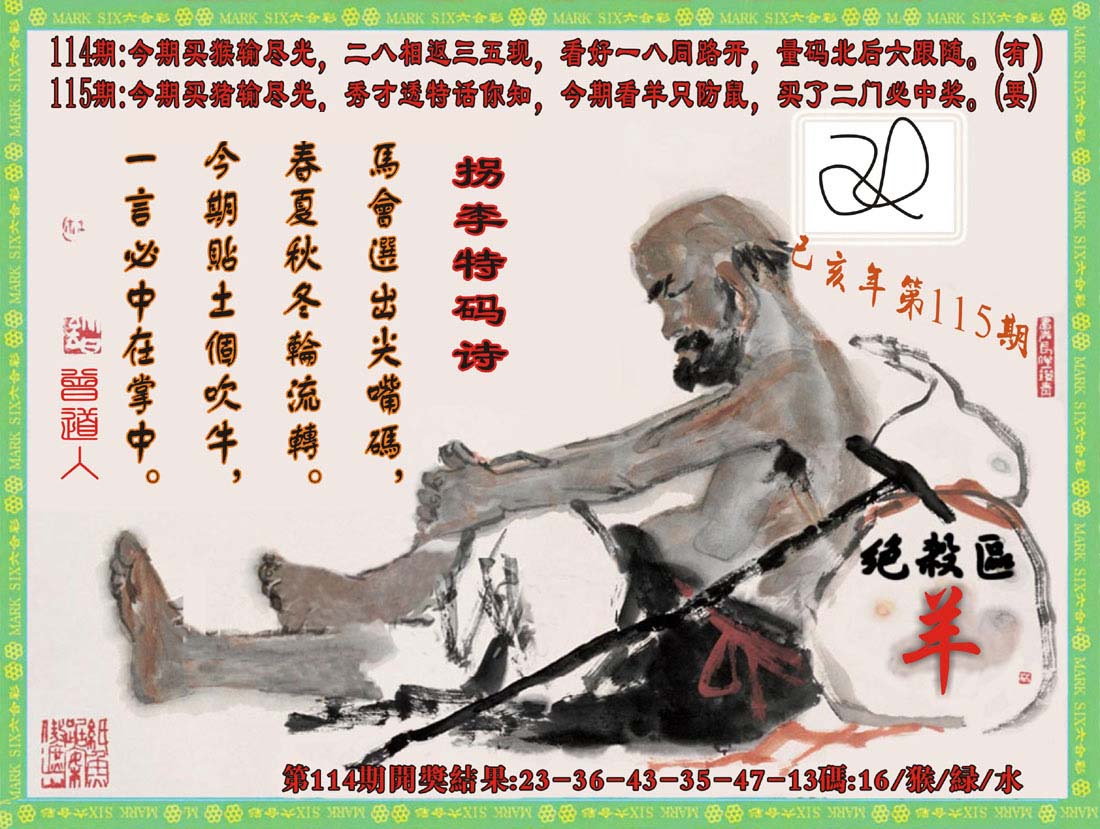 MARK SIX六合彩
114期:今期买猴输尽光，二八相返三五现，看好一八同路开，量码北后六跟随。(有)
115期:今期买猪输尽光，秀才透特话你知，今期看羊只防鼠，买了二门必中奖。(要)
己亥年第115期
拐李特码诗
馬會選出尖嘴碼，
春夏秋冬輪流轉。
今期貼士個吹牛，
一言必中在掌中。
曾道人
绝殺區
羊
第114期開獎結果:23-36-43-35-47-13碼:16/猴/緑/水